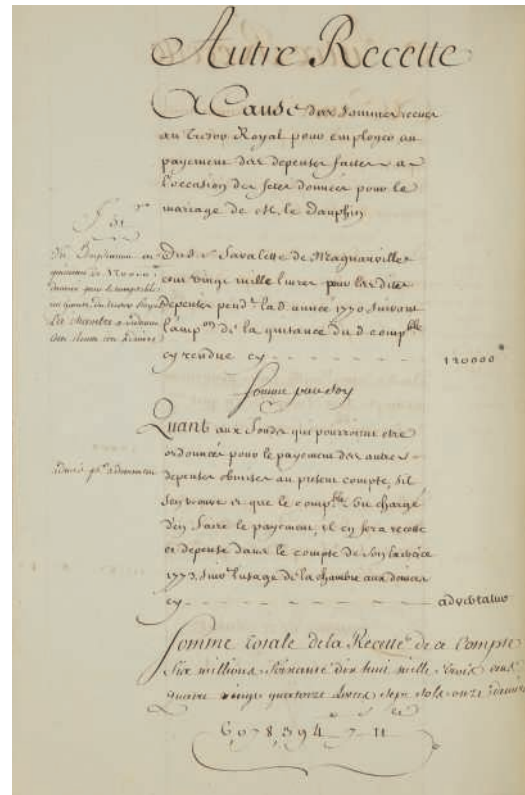 Autre Recette
A Cause des sommes receues
au Tresor Royal pour employer au
payement des depenses faites a
l'occasion des fetes données pour le
mariage de M. le Dauphin
Du d. s. Savalette de Magnanville
cent vingt mille livres pour lesdites
depenses pend.t lad. année 1770 suivant
l'amp.on de la quitance du d. comp.ble
cy rendue cy - - - - - - - 120000
Somme par soy
Quant aux fonds qui pourroient etre
ordonnés pour le payement des autres
depenses obmises au present compte, s'il
s'en trouve et que le comp.ble fut chargé
d'en faire le payement, il en sera recette
et depense dans le compte de son exercice
1773. suiv.t l'usage de la chambre aux deniers
cy - - - - - - - advertatur
Somme totale de la Recette de ce Compte
Six millions soixante dix huit mille trois cens
quatre vingt quatorze livres sept sols onze deniers
6,078,394 7 11